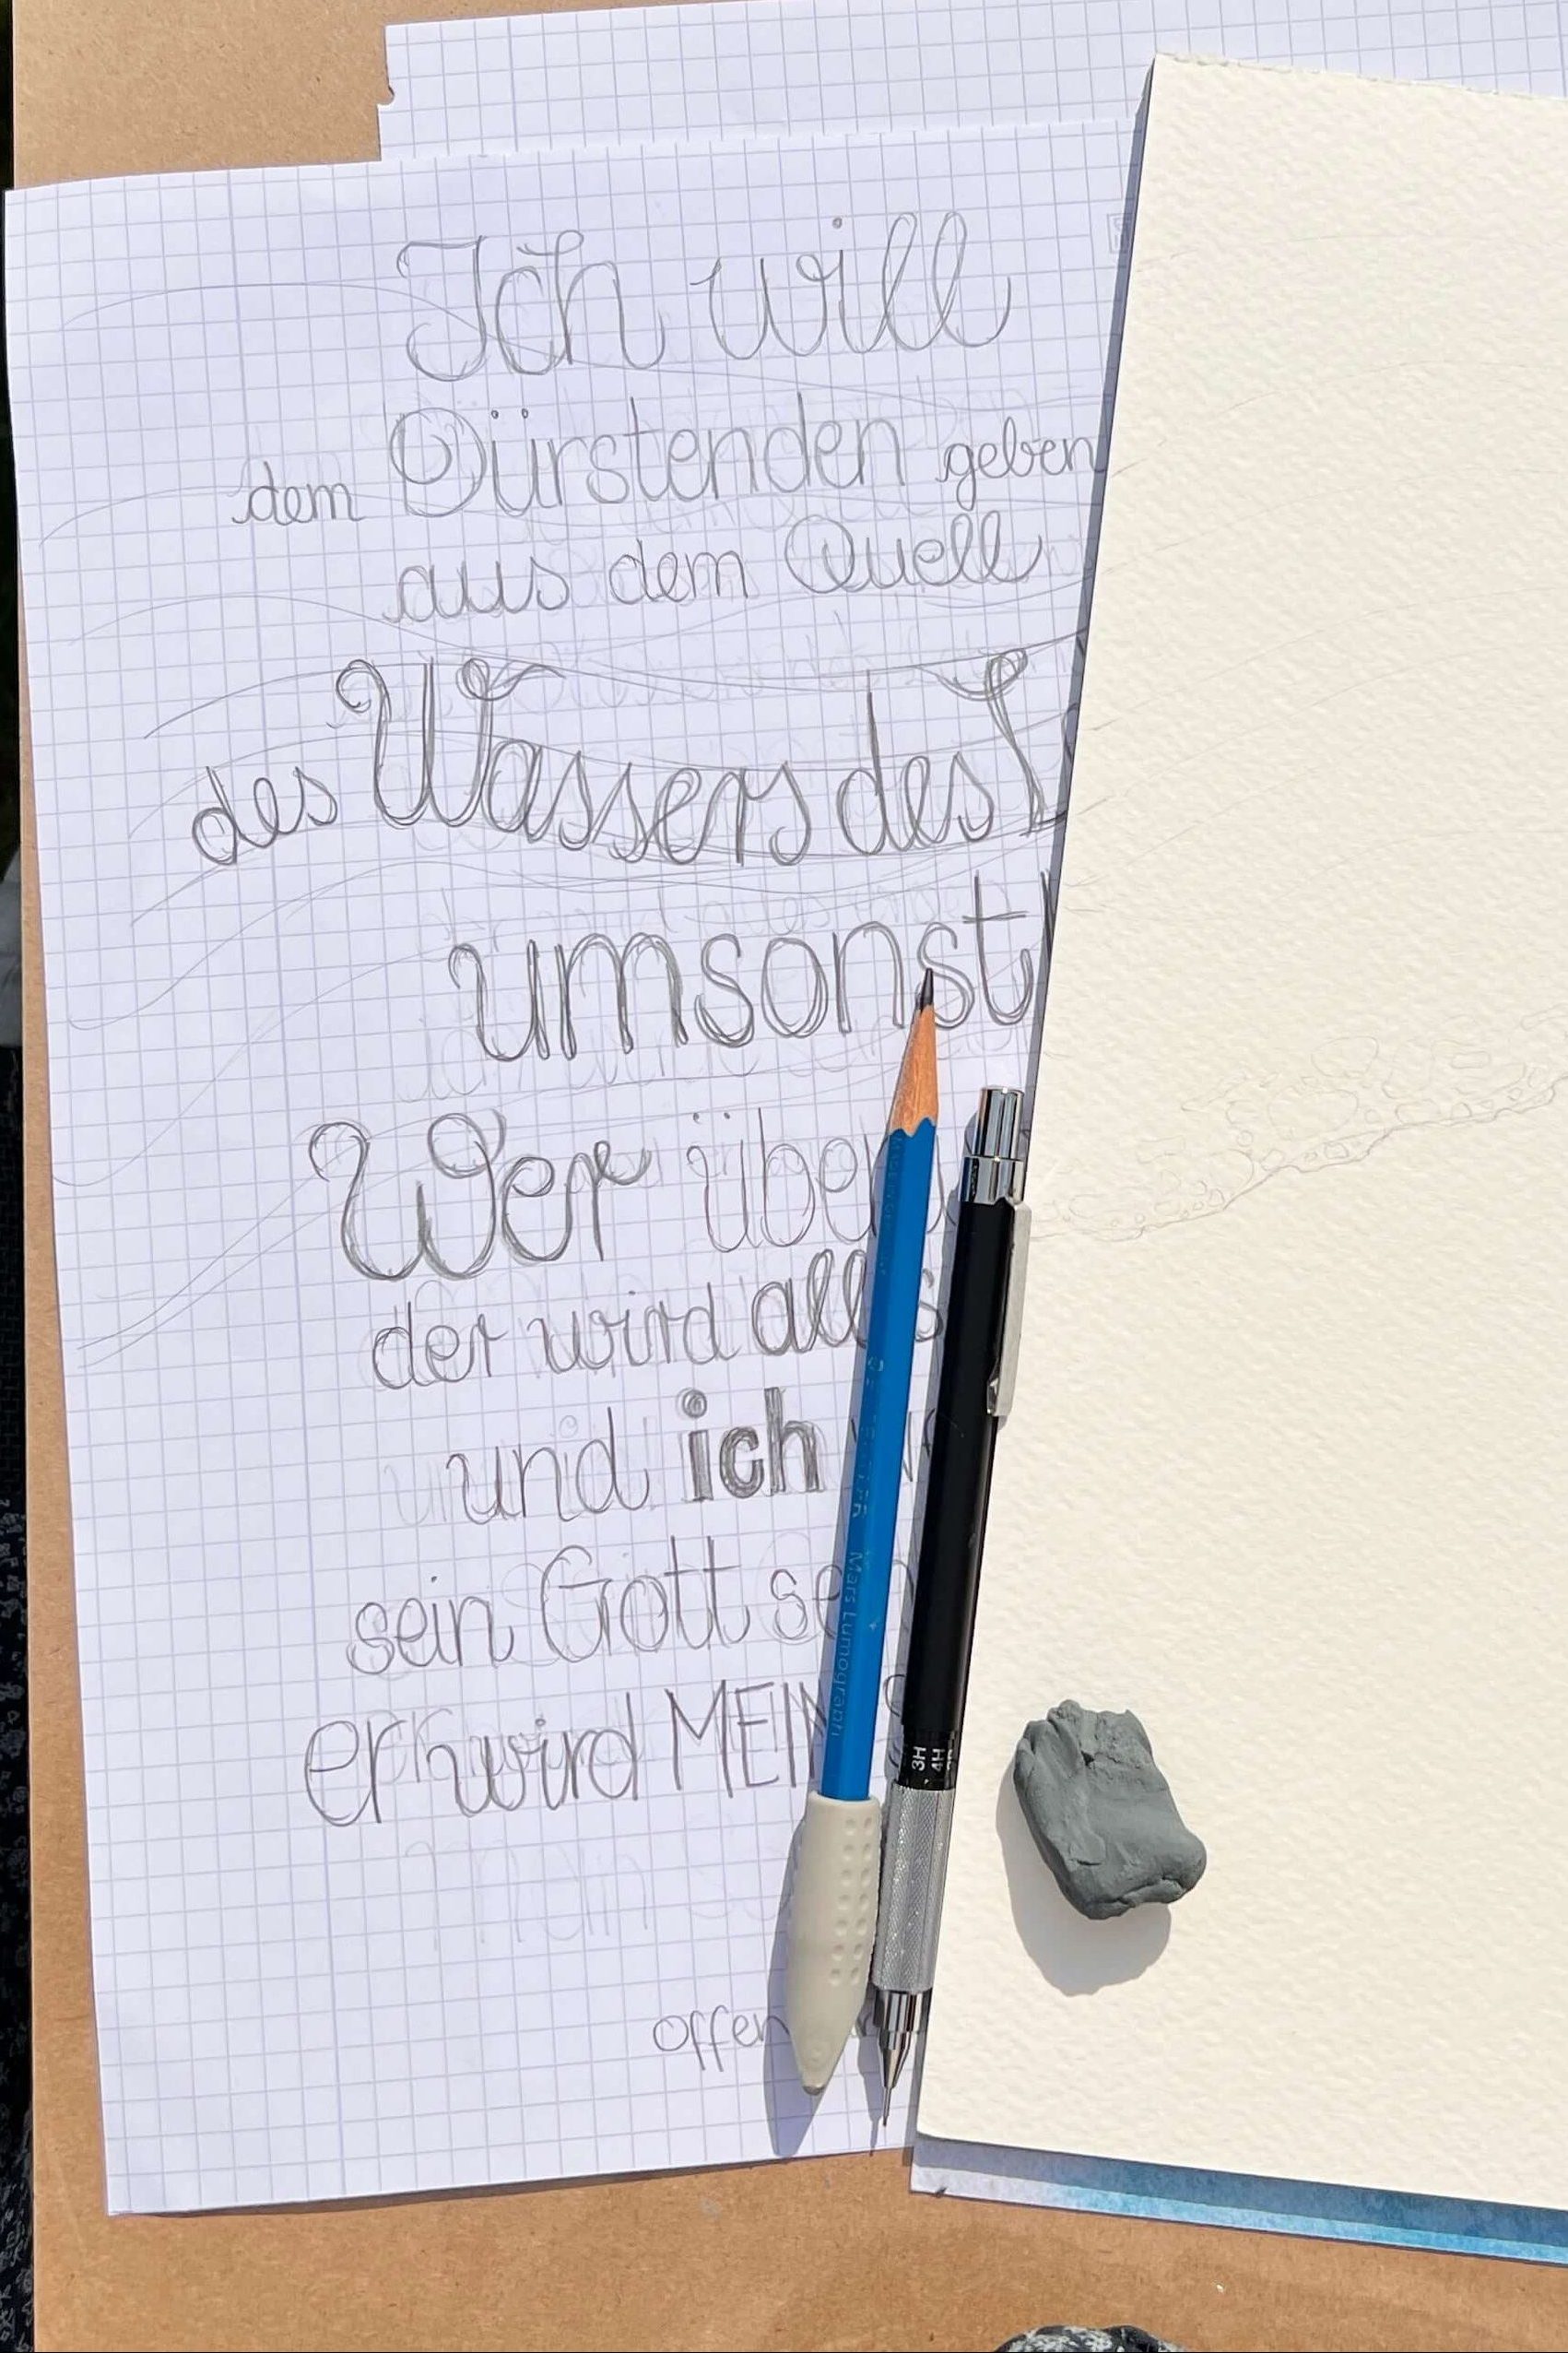 Ich will
dem Dürstenden geben
aus dem Quell
des Wassers des L
umsonst!
Wer über
der wird alles
und ich
sein Gott sein
er wird MEIN
offen
Mars Lumograph
3H
4H